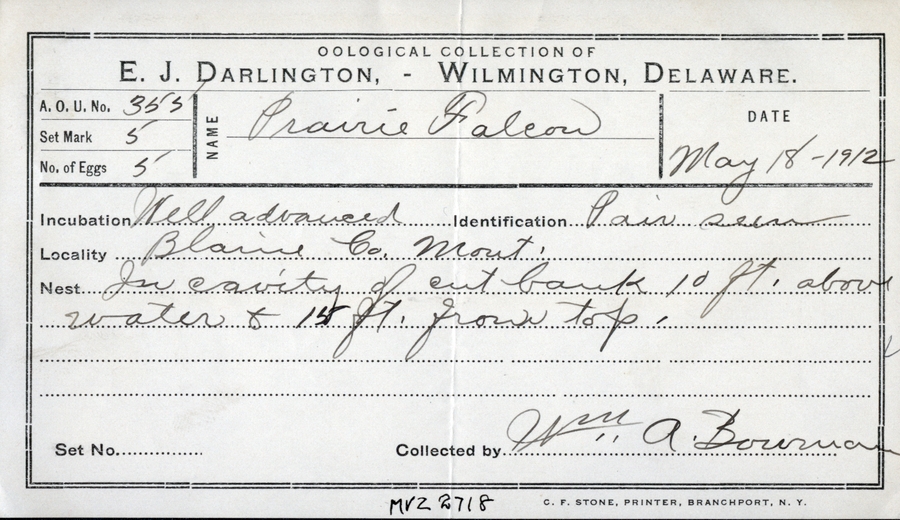 OOLOGICAL COLLECTION OF
E. J. DARLINGTON, - WILMINGTON, DELAWARE.
A. O. U. No. 355
Set Mark 5
No. of Eggs 5
NAME Prairie Falcon
DATE
May 18-1912
Incubation Well advanced Identification Pair seen
Locality Blaine Co. Mont.
Nest In cavity of cut bank 10 ft. above
water & 15 ft. from top.
Set No.
Collected by Wm. A. Bowman
MVZ 2718
C. F. STONE, PRINTER, BRANCHPORT, N. Y.